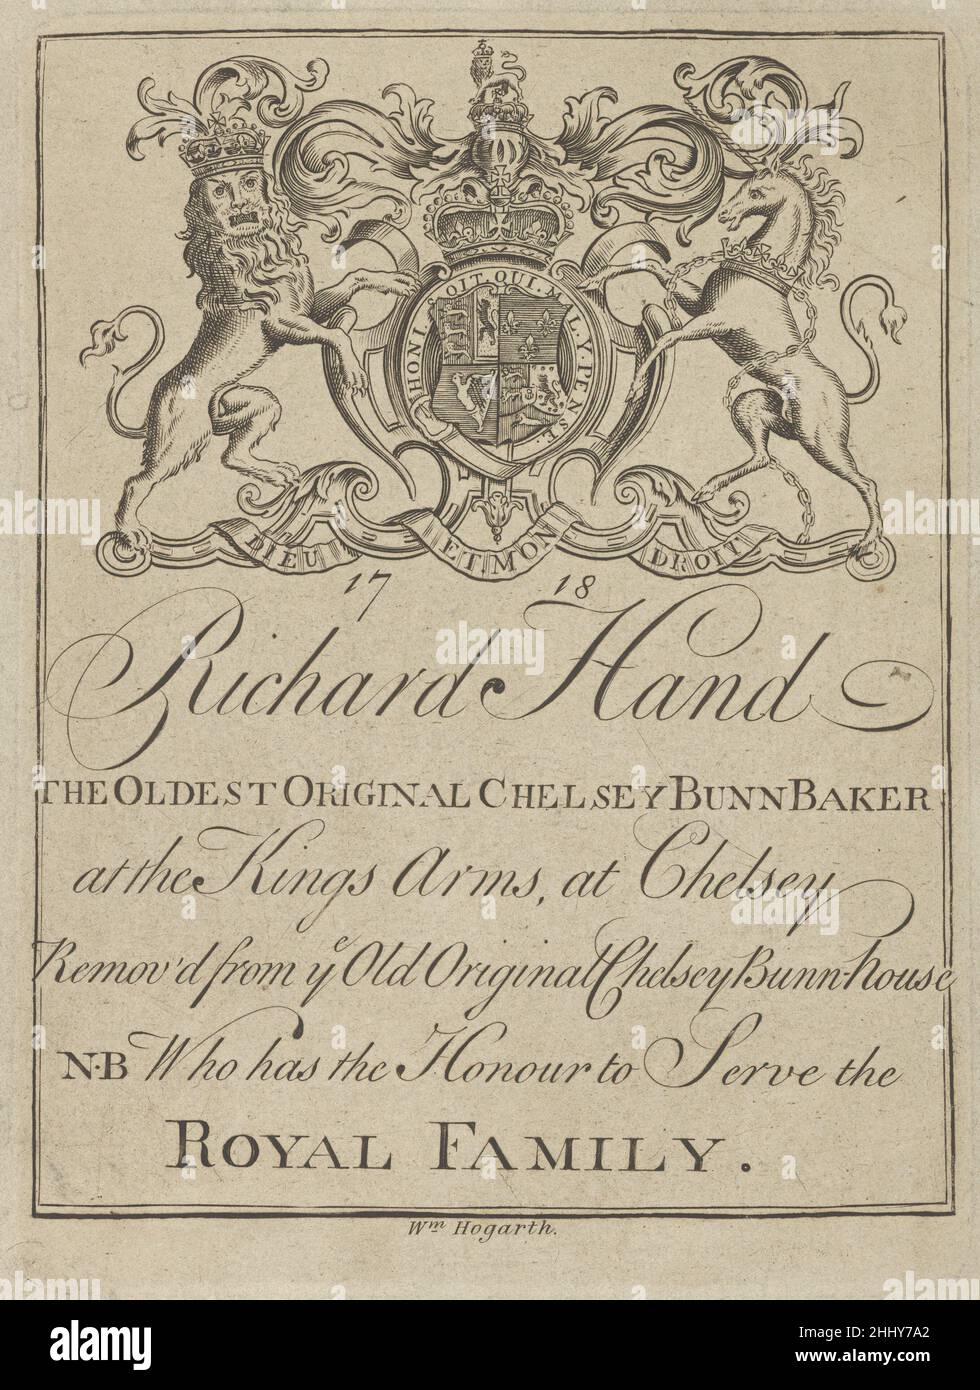 HONI SOIT QUI MAL Y PENSE
DIEU ET MON DROIT
17 18
Richard Hand
THE OLDEST ORIGINAL CHELSEY BUNN BAKER
at the Kings Arms, at Chelsey
Remov'd from yᵉ Old Original Chelsey Bunn-house
N·B Who has the Honour to Serve the
ROYAL FAMILY.
Wᵐ Hogarth.
alamy
Image ID: 2HHY7A2
www.alamy.com